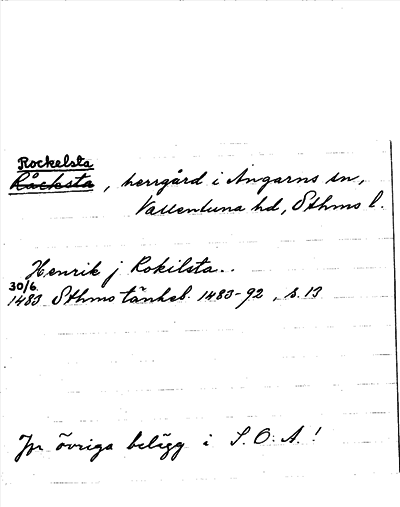 Rockelsta
Råcksta, herrgård i Angarns sn,
Vallentuna hd, Sthms l.
Henrik j Rokilsta..
30/6
1483 Sthms tänkeb. 1483-92, s. 13
Jfr övriga belägg i S.O.A.!